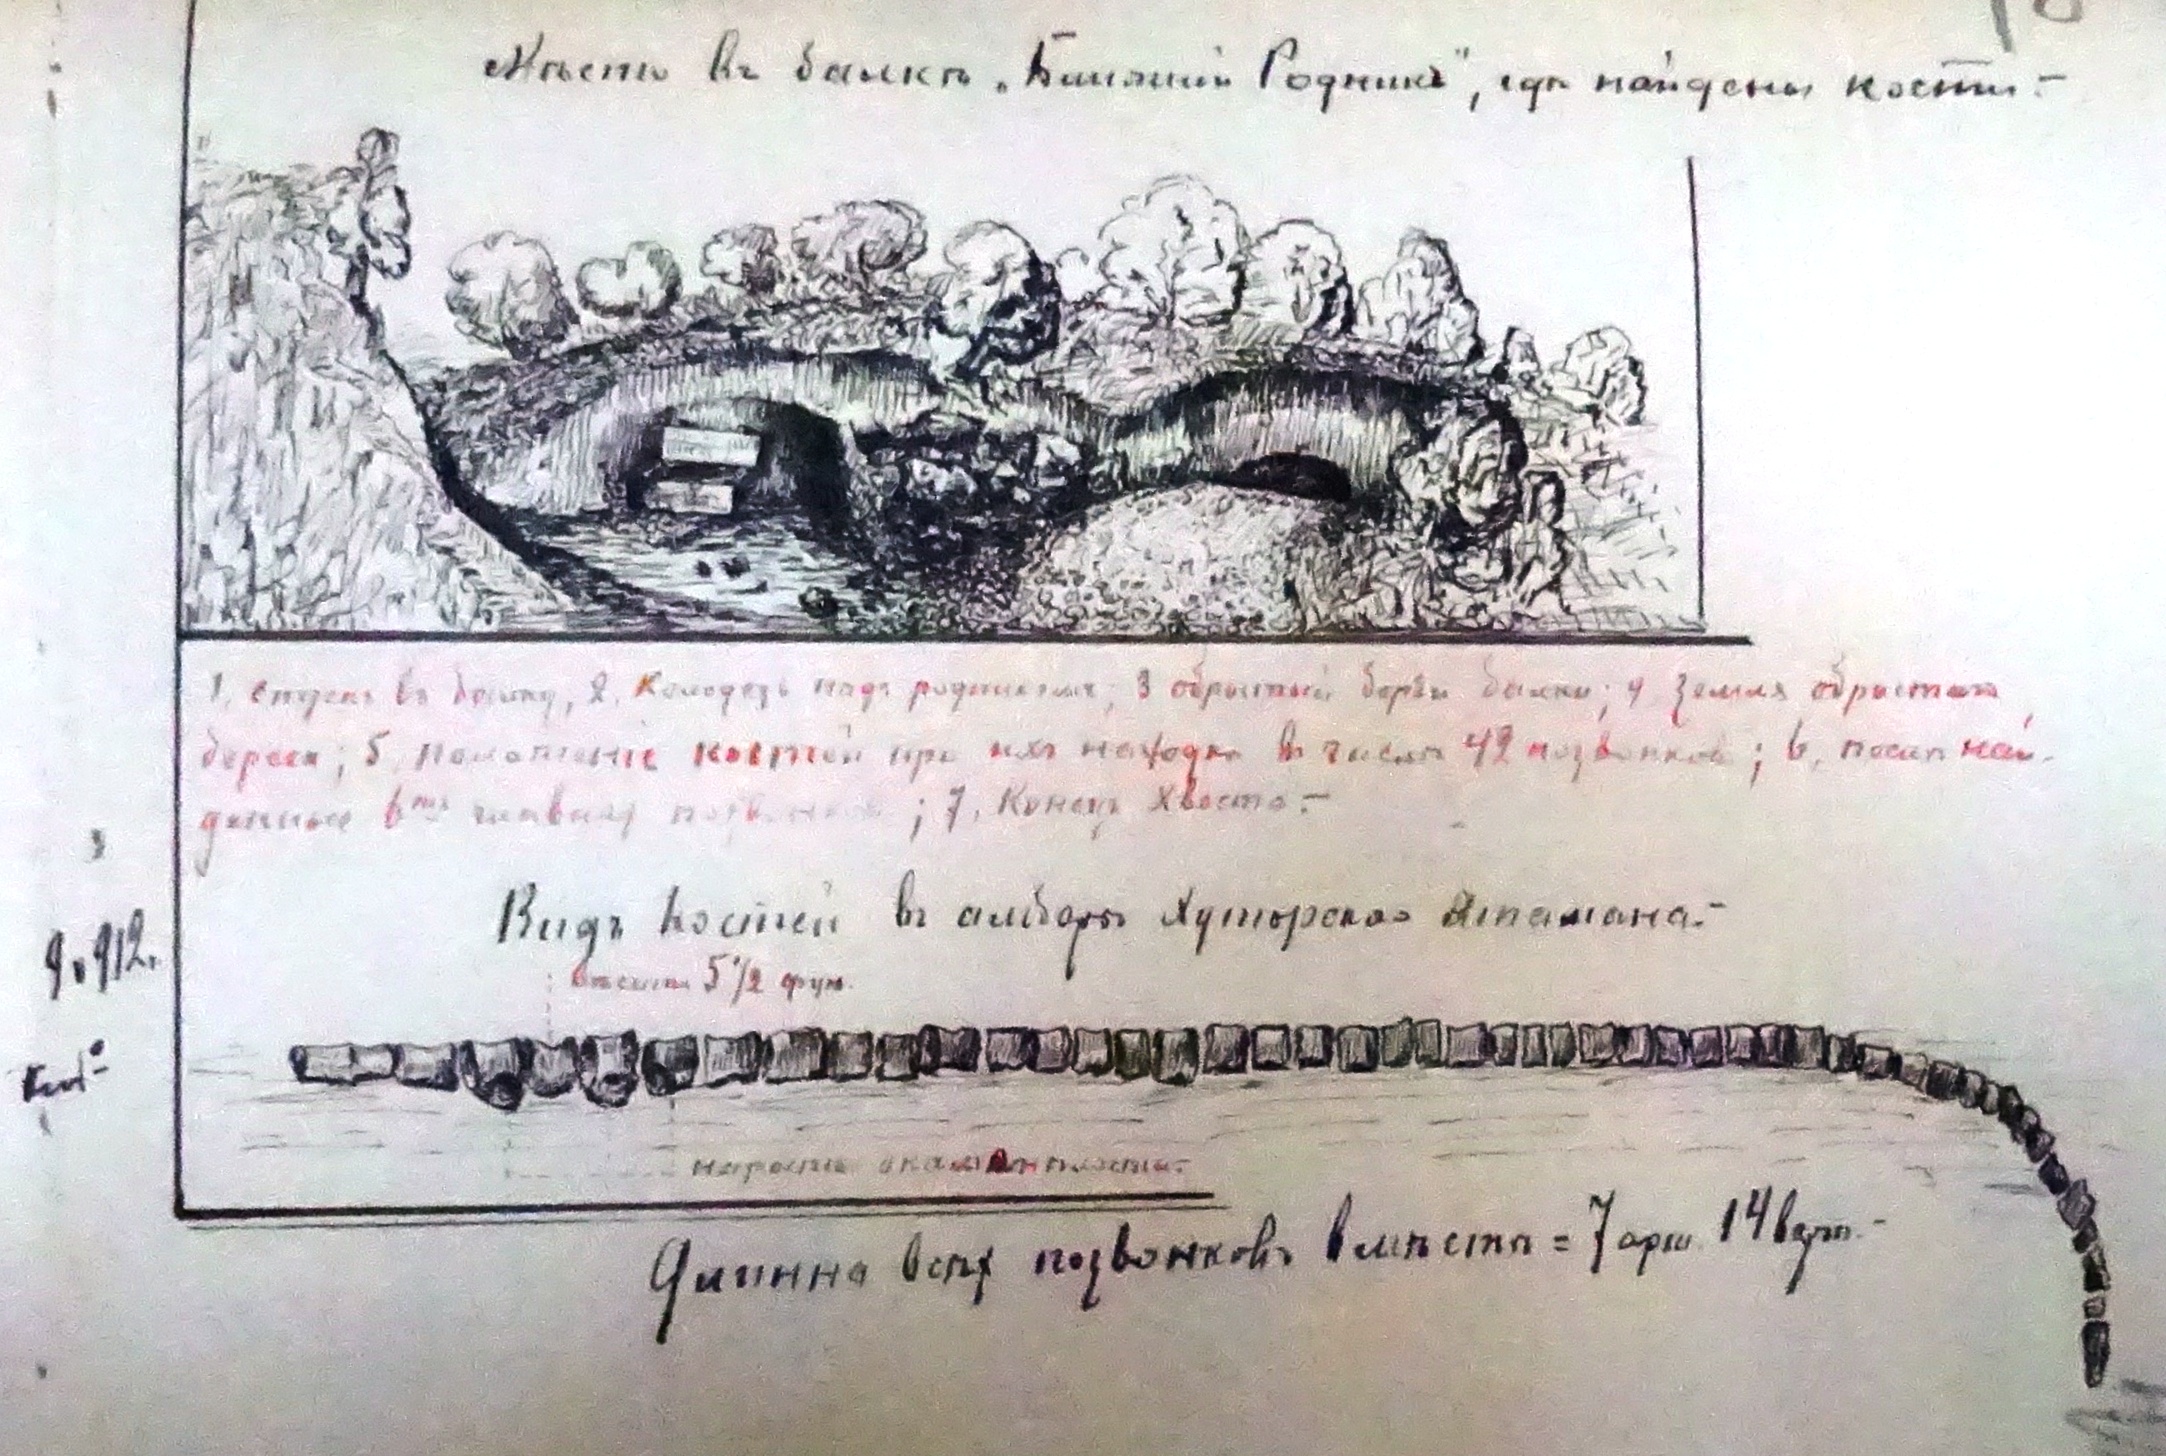 Мѣсто въ балкѣ „Ближній Родникъ", гдѣ найдены кости.-
1, спускъ въ балку, 2, Колодезь надъ родникомъ; 3 обрытый берегъ балки; 4 Земля обрытаго
берега; 5, Положеніе костей при ихъ находкѣ въ числѣ 42 позвонковъ; 6, най-
денные позвонки; 7, Конецъ хвоста.-
Видъ костей въ амбарѣ Хуторского Атамана.-
9.912.
5 1/2 фун.
наросты окаменѣлости.-
Длинна всѣх позвонковъ вмѣстѣ = 7 арш. 14 верш.-